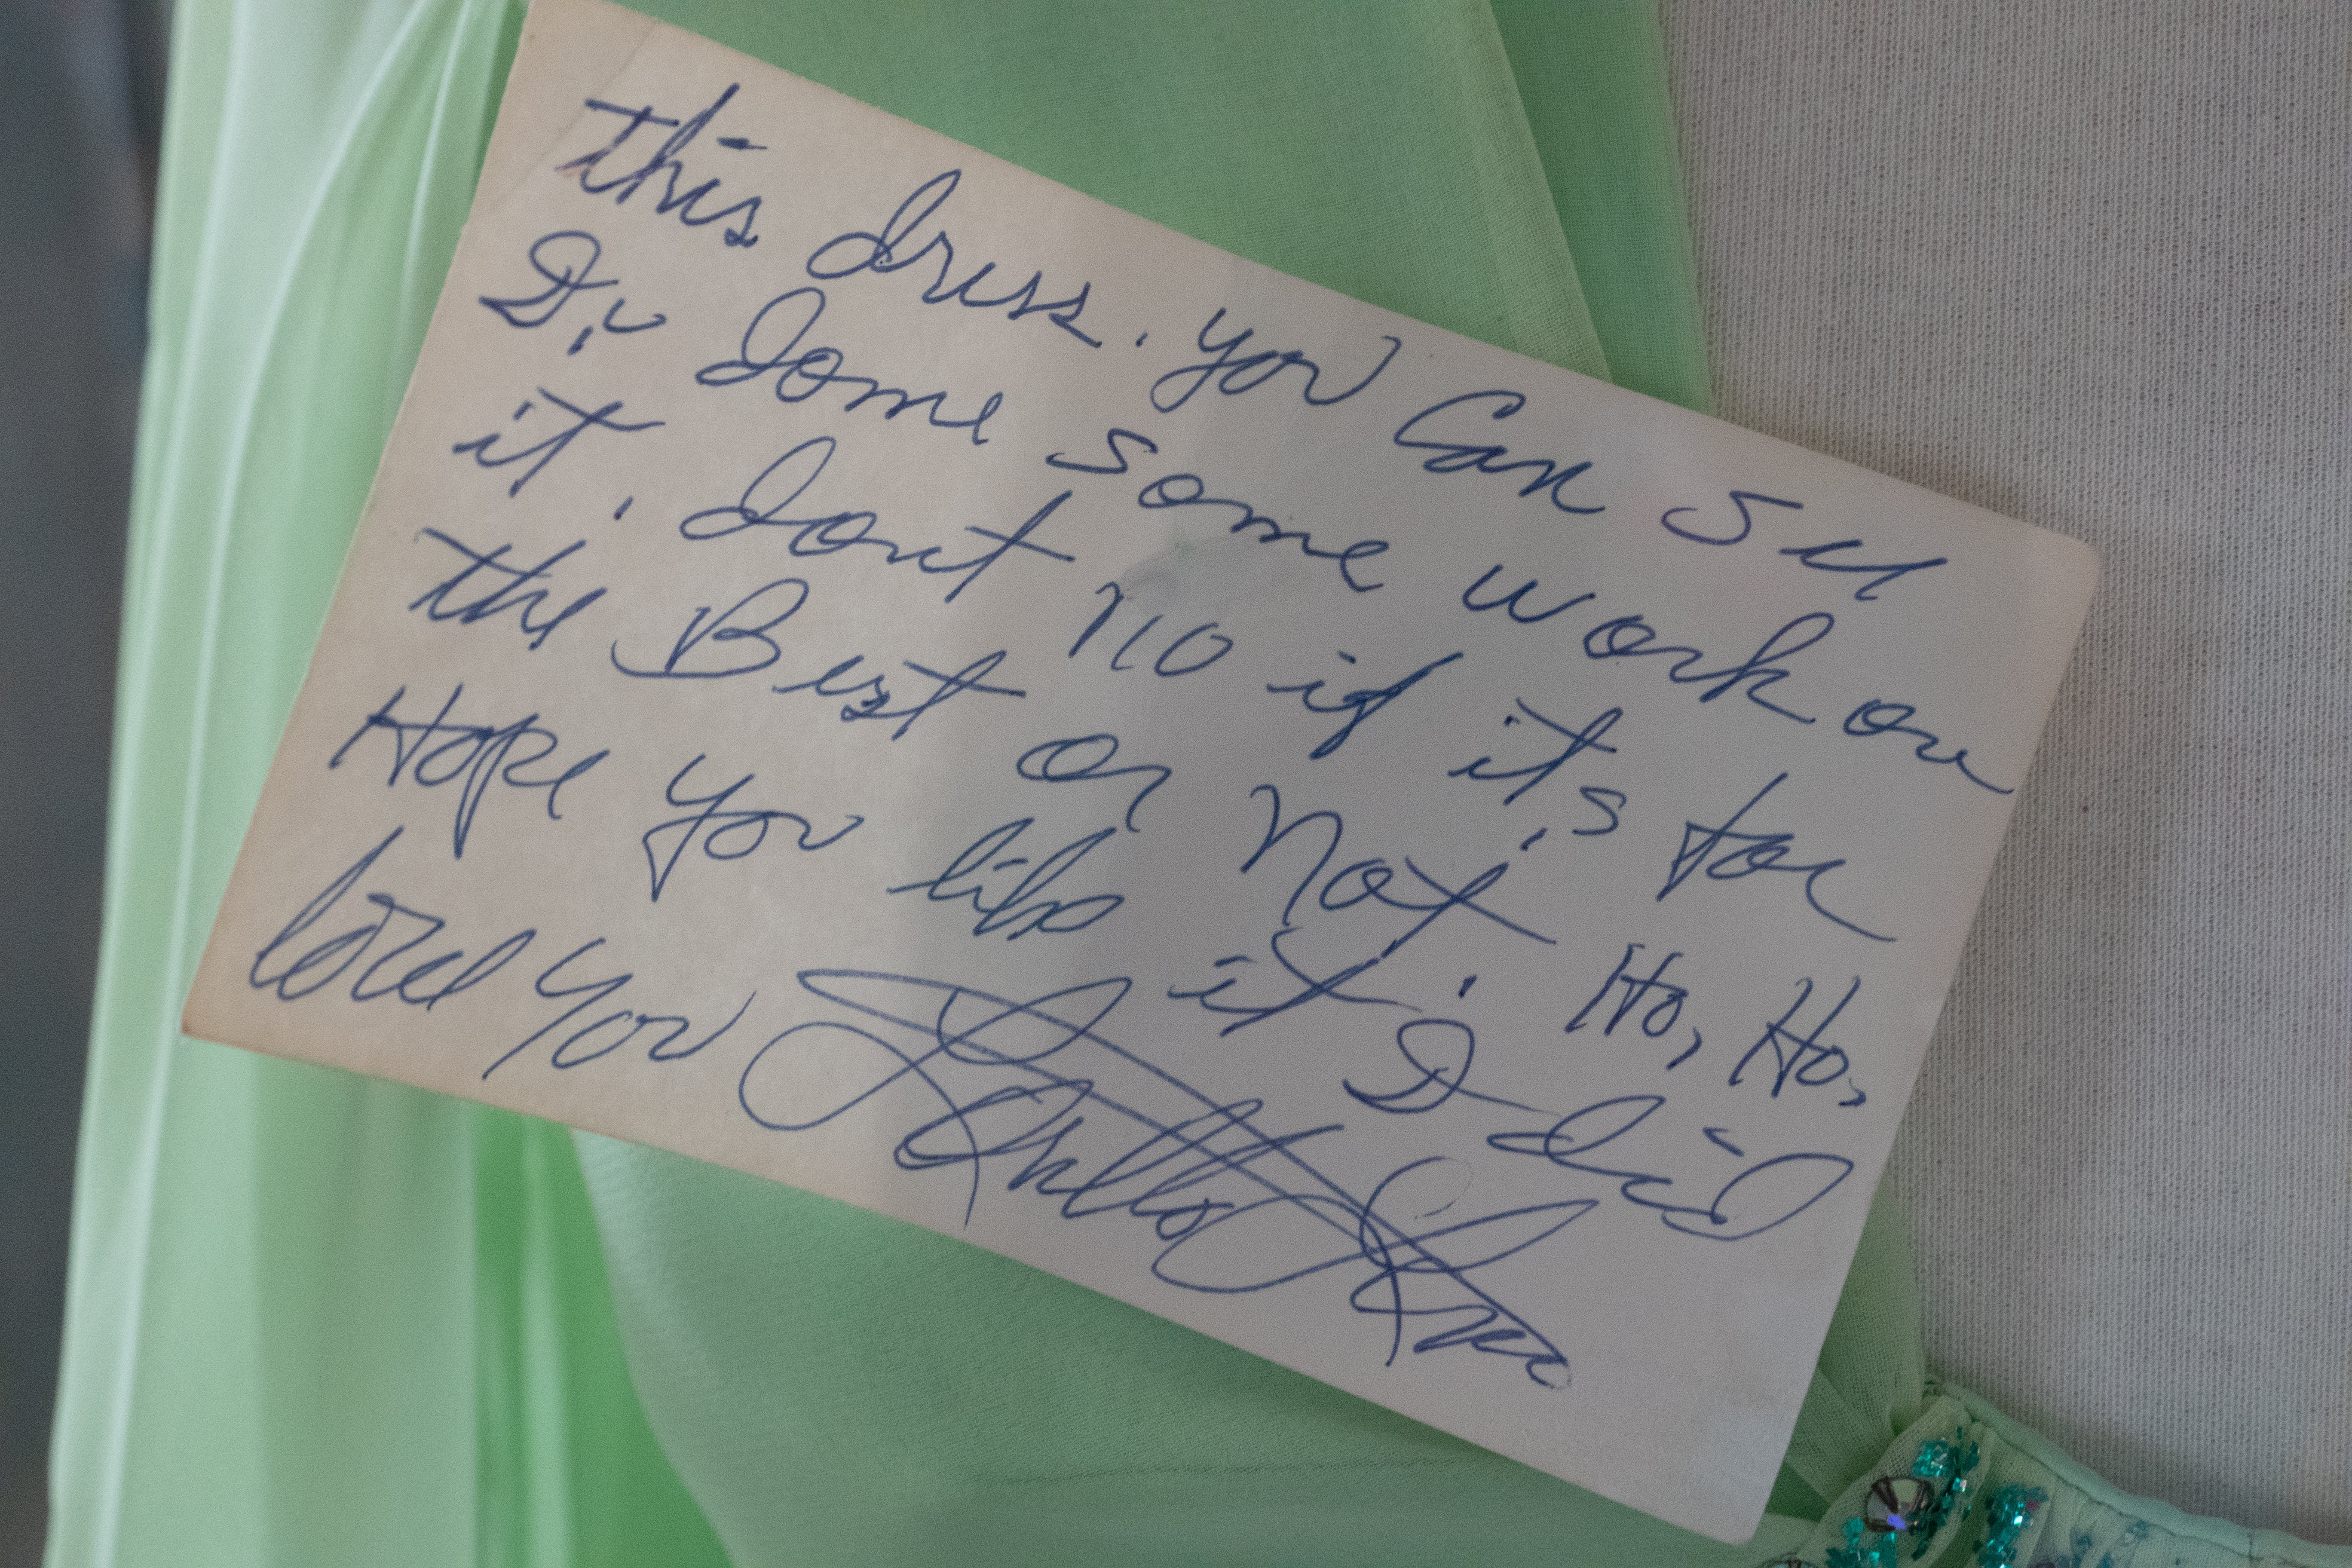 this dress. you Can see
I'v done some work on
it. dont no if it's for
the Best or not. Ho, Ho,
Hope you like it I did
love you Loretta Lynn